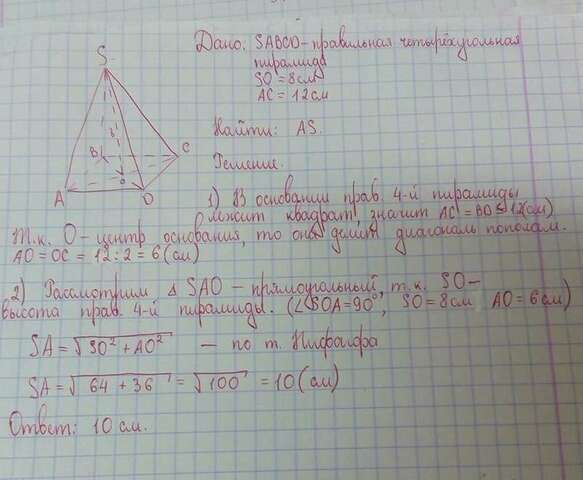 Дано: SABCD-правильная четырёхугольная
пирамида
SO = 8см
AC = 12см
Найти: AS.
Решение.
S
B
C
A
O
D
1) В основании прав. 4-й пирамиды
лежит квадрат, значит AC = BD = 12(см)
т.к. O-центр основания, то она делит диагональ пополам.
AO = OC = 12:2 = 6 (см)
2) Рассмотрим Δ SAO - прямоугольный, т.к. SO-
высота прав. 4-й пирамиды. (∠SOA=90°, SO=8см AO=6см)
SA = √SO²+AO² - по т. Пифагора
SA = √64+36 = √100 = 10(см)
Ответ: 10 см.